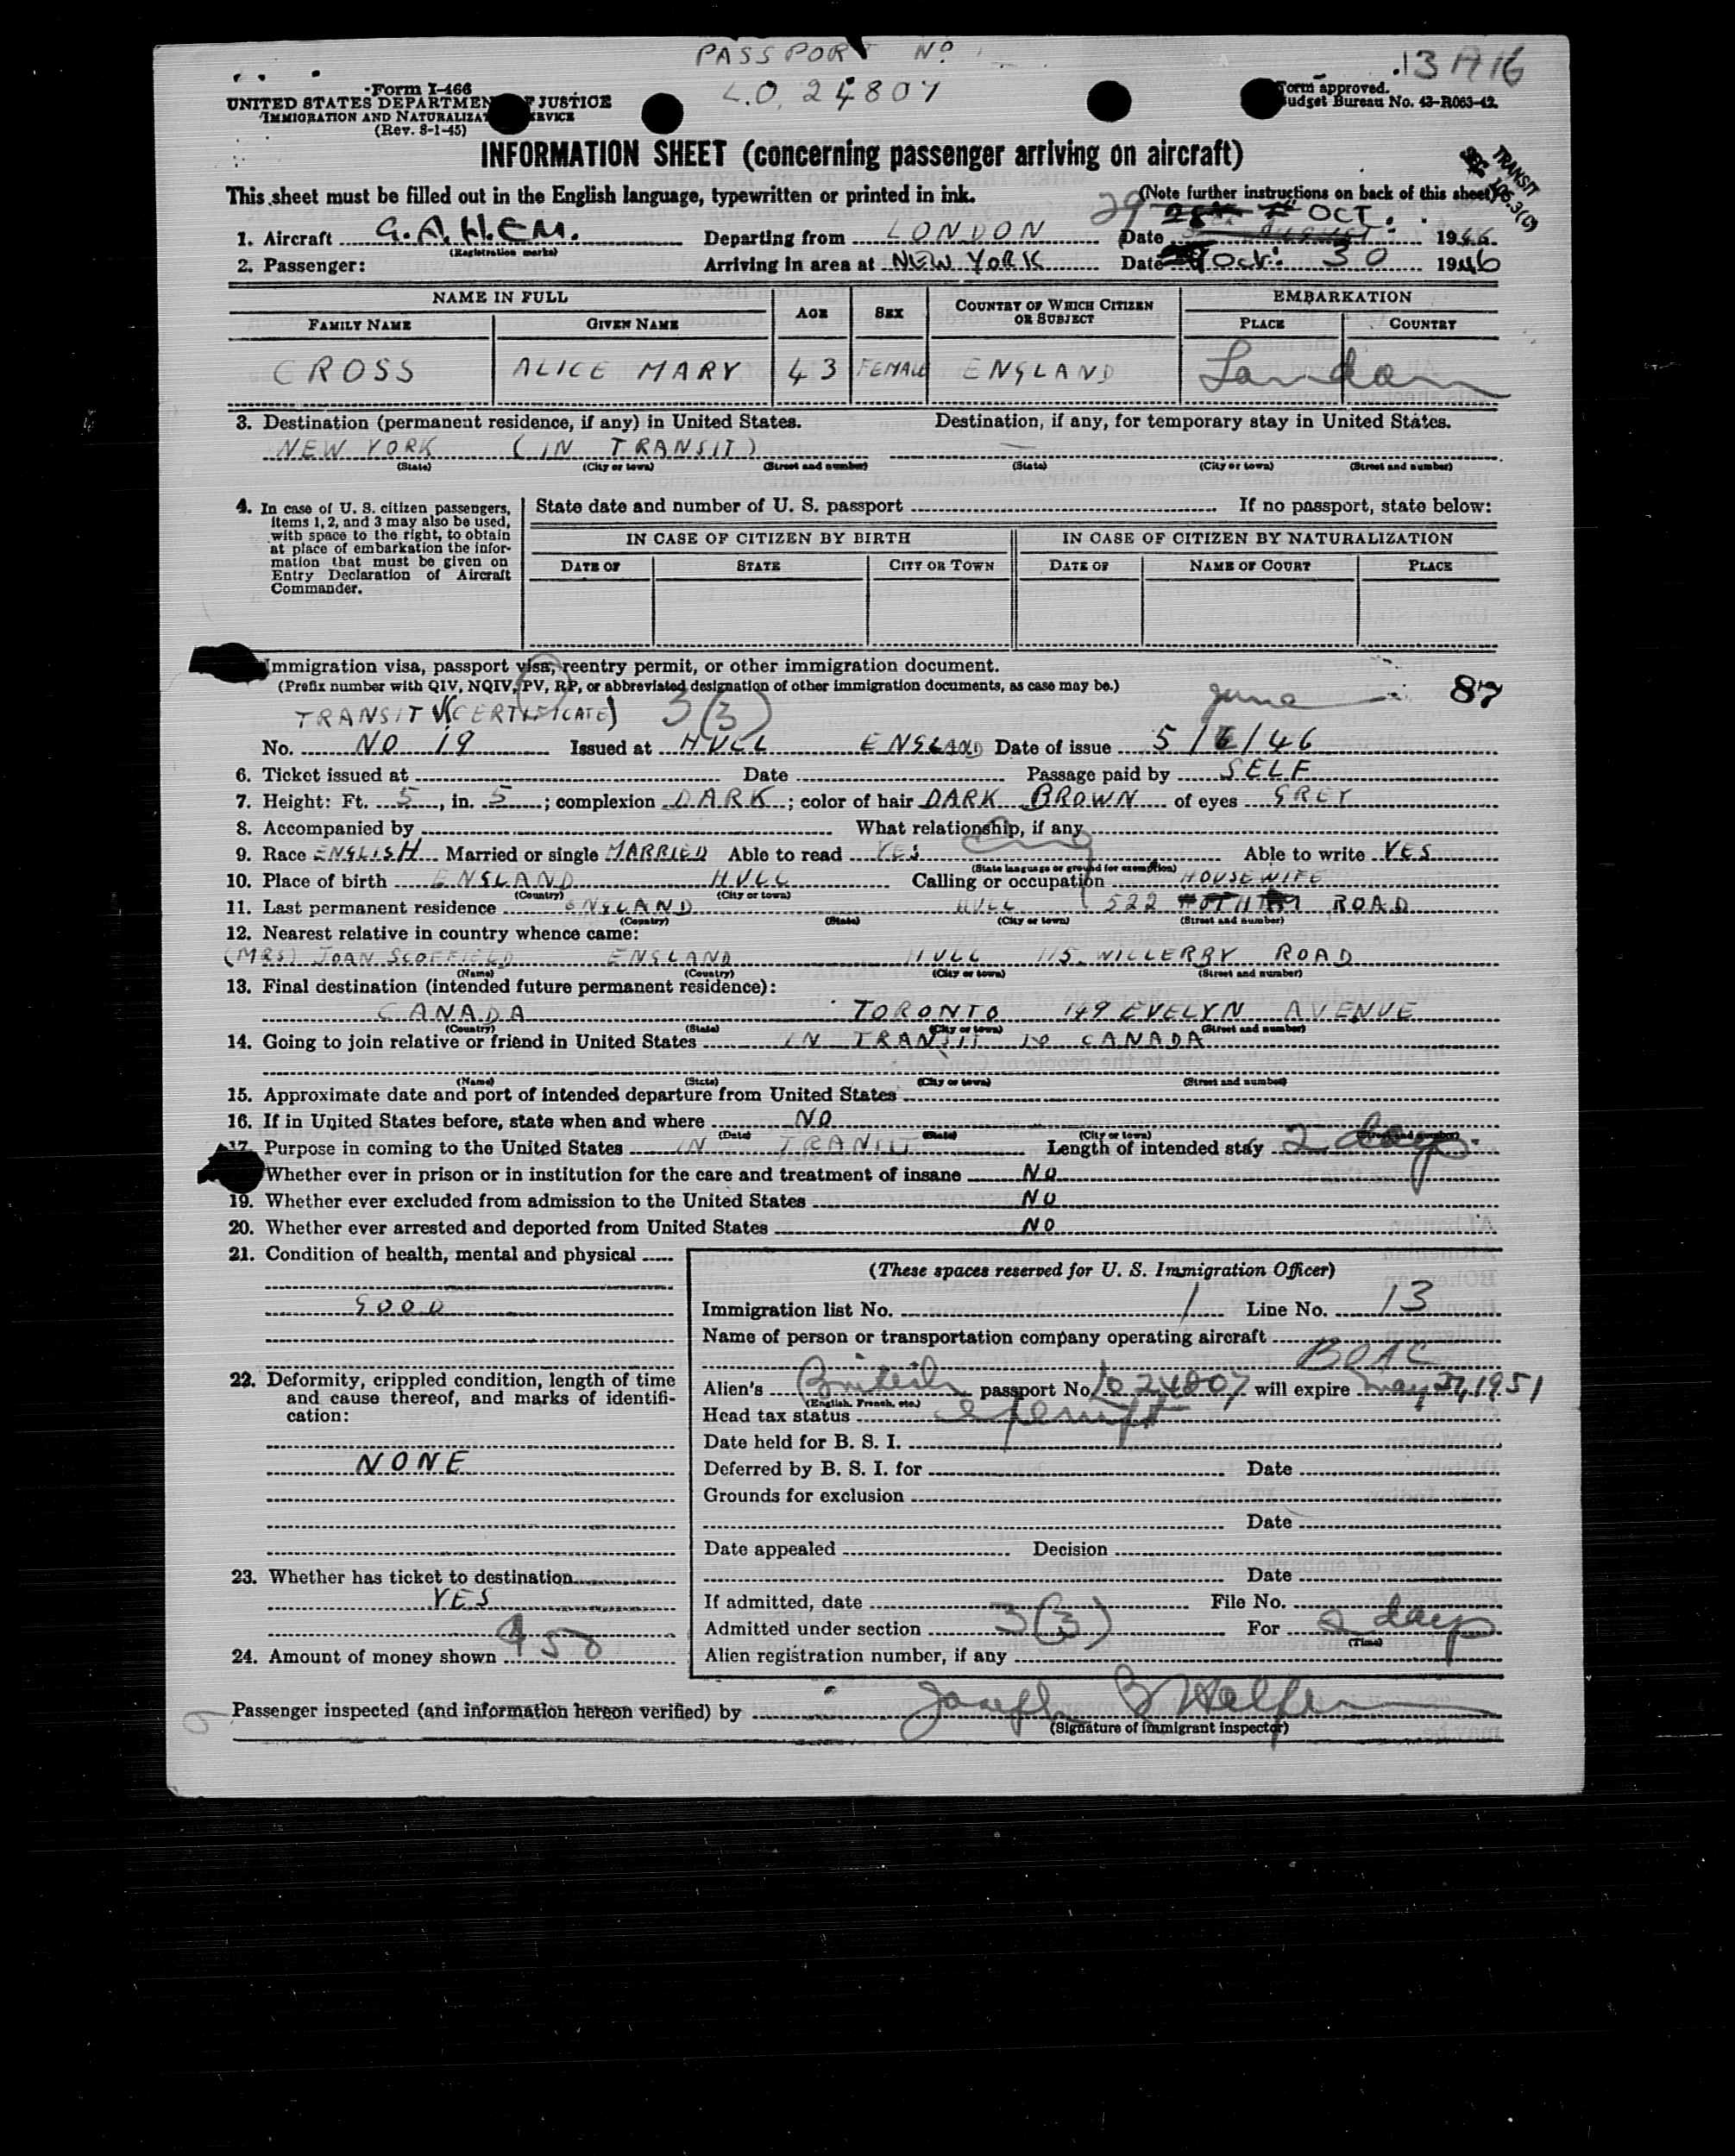 PASSPORT No.
L.O. 24807
13 A 16
Form I-466
UNITED STATES DEPARTMENT OF JUSTICE
IMMIGRATION AND NATURALIZATION SERVICE
(Rev. 8-1-45)
Form approved.
Budget Bureau No. 43-R063-42.
INFORMATION SHEET (concerning passenger arriving on aircraft)
TRANSIT
SEC. 176.3(C)
This sheet must be filled out in the English language, typewritten or printed in ink.
(Note further instructions on back of this sheet)
1. Aircraft G.A.H.E.M. Departing from LONDON Date 29 OCT. 1946.
(Registration marks)
2. Passenger: Arriving in area at NEW YORK Date Oct. 30 1946
NAME IN FULL AGE SEX COUNTRY OF WHICH CITIZEN OR SUBJECT EMBARKATION
FAMILY NAME GIVEN NAME PLACE COUNTRY
CROSS ALICE MARY 43 FEMALE ENGLAND London
3. Destination (permanent residence, if any) in United States. Destination, if any, for temporary stay in United States.
NEW YORK (IN TRANSIT) —
(State) (City or town) (Street and number) (State) (City or town) (Street and number)
4. In case of U. S. citizen passengers, items 1, 2, and 3 may also be used, with space to the right, to obtain at place of embarkation the information that must be given on Entry Declaration of Aircraft Commander.
State date and number of U. S. passport If no passport, state below:
IN CASE OF CITIZEN BY BIRTH IN CASE OF CITIZEN BY NATURALIZATION
DATE OF STATE CITY OR TOWN DATE OF NAME OF COURT PLACE
Immigration visa, passport visa, reentry permit, or other immigration document.
(Prefix number with QIV, NQIV, PV, RP, or abbreviated designation of other immigration documents, as case may be.)
TRANSIT (CERTIFICATE) 3(3) June 87
No. NO 19 Issued at HULL ENGLAND Date of issue 5/6/46
6. Ticket issued at Date Passage paid by SELF
7. Height: Ft. 5, in. 5; complexion DARK; color of hair DARK BROWN of eyes GREY
8. Accompanied by What relationship, if any
9. Race ENGLISH Married or single MARRIED Able to read YES Eng Able to write YES
(State language or ground for exemption)
10. Place of birth ENGLAND HULL Calling or occupation HOUSEWIFE
(Country) (City or town)
11. Last permanent residence ENGLAND HULL 522 ROAD
(Country) (State) (City or town) (Street and number)
12. Nearest relative in country whence came:
(MRS) JOAN SCOFFIELD ENGLAND HULL 115 WILLERBY ROAD
(Name) (Country) (City or town) (Street and number)
13. Final destination (intended future permanent residence):
CANADA TORONTO 149 EVELYN AVENUE
(Country) (State) (City or town) (Street and number)
14. Going to join relative or friend in United States IN TRANSIT TO CANADA
(Name) (State) (City or town) (Street and number)
15. Approximate date and port of intended departure from United States
16. If in United States before, state when and where NO
(Date) (State) (City or town) (Street and number)
17. Purpose in coming to the United States IN TRANSIT Length of intended stay 2 days.
Whether ever in prison or in institution for the care and treatment of insane NO
19. Whether ever excluded from admission to the United States NO
20. Whether ever arrested and deported from United States NO
21. Condition of health, mental and physical
GOOD
22. Deformity, crippled condition, length of time and cause thereof, and marks of identification:
NONE
23. Whether has ticket to destination
YES
24. Amount of money shown $50
(These spaces reserved for U. S. Immigration Officer)
Immigration list No. 1 Line No. 13
Name of person or transportation company operating aircraft
BOAC
Alien's British passport No. LO 24807 will expire May 27, 1951
(English, French, etc.)
Head tax status exempt
Date held for B. S. I.
Deferred by B. S. I. for Date
Grounds for exclusion
Date
Date appealed Decision
Date
If admitted, date File No.
Admitted under section 3(3) For 2 days
(Time)
Alien registration number, if any
Passenger inspected (and information hereon verified) by Joseph B Halfer
(Signature of Immigrant Inspector)